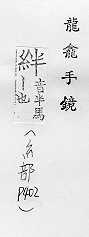 龍龕手鏡
絆音半馬
丨也
(糸部
P402)